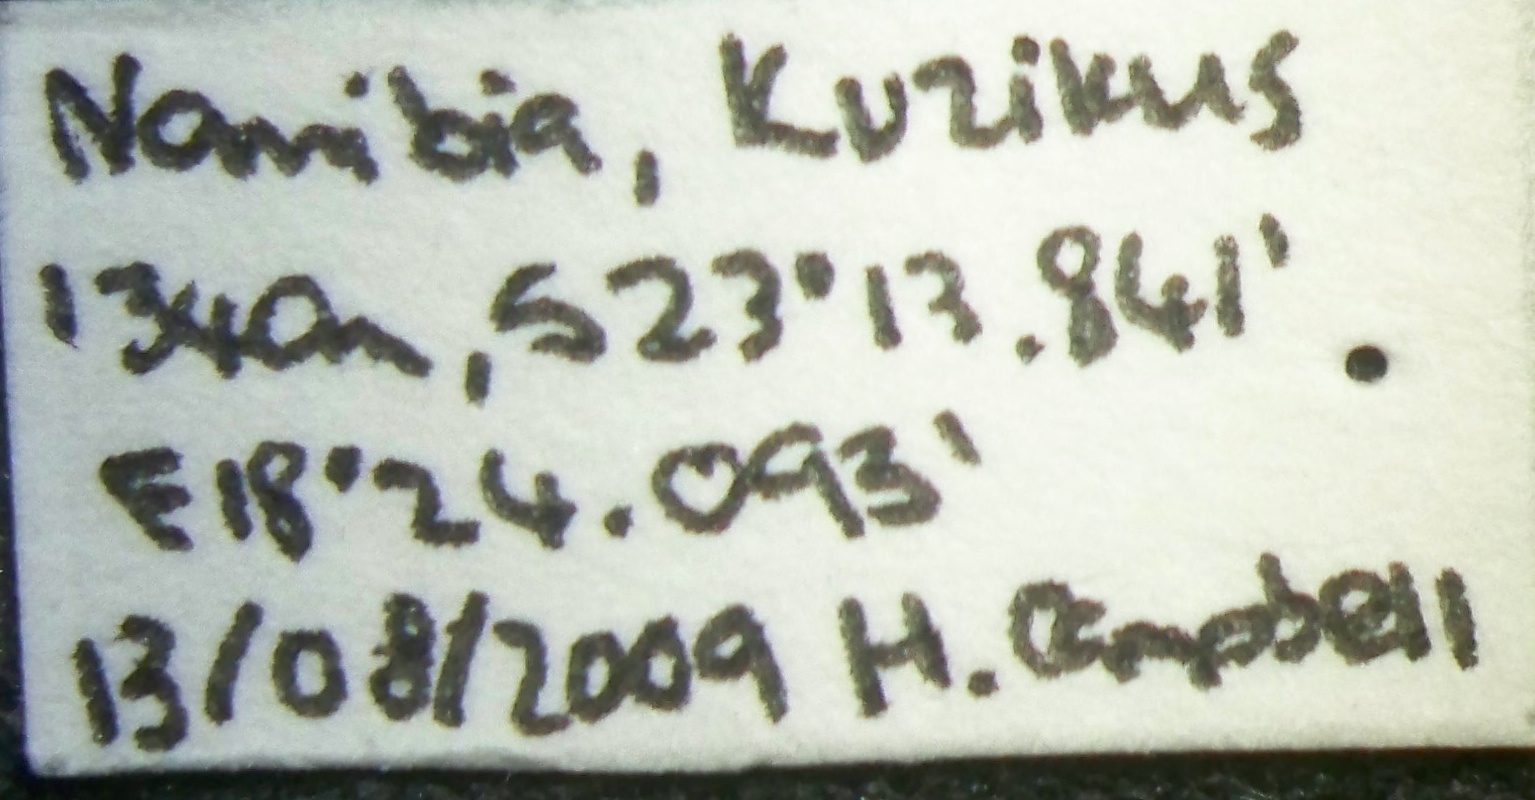 Namibia, Kuzikus
1340m, S23°13.841'
E18°24.093'
13/08/2009 H. Campbell